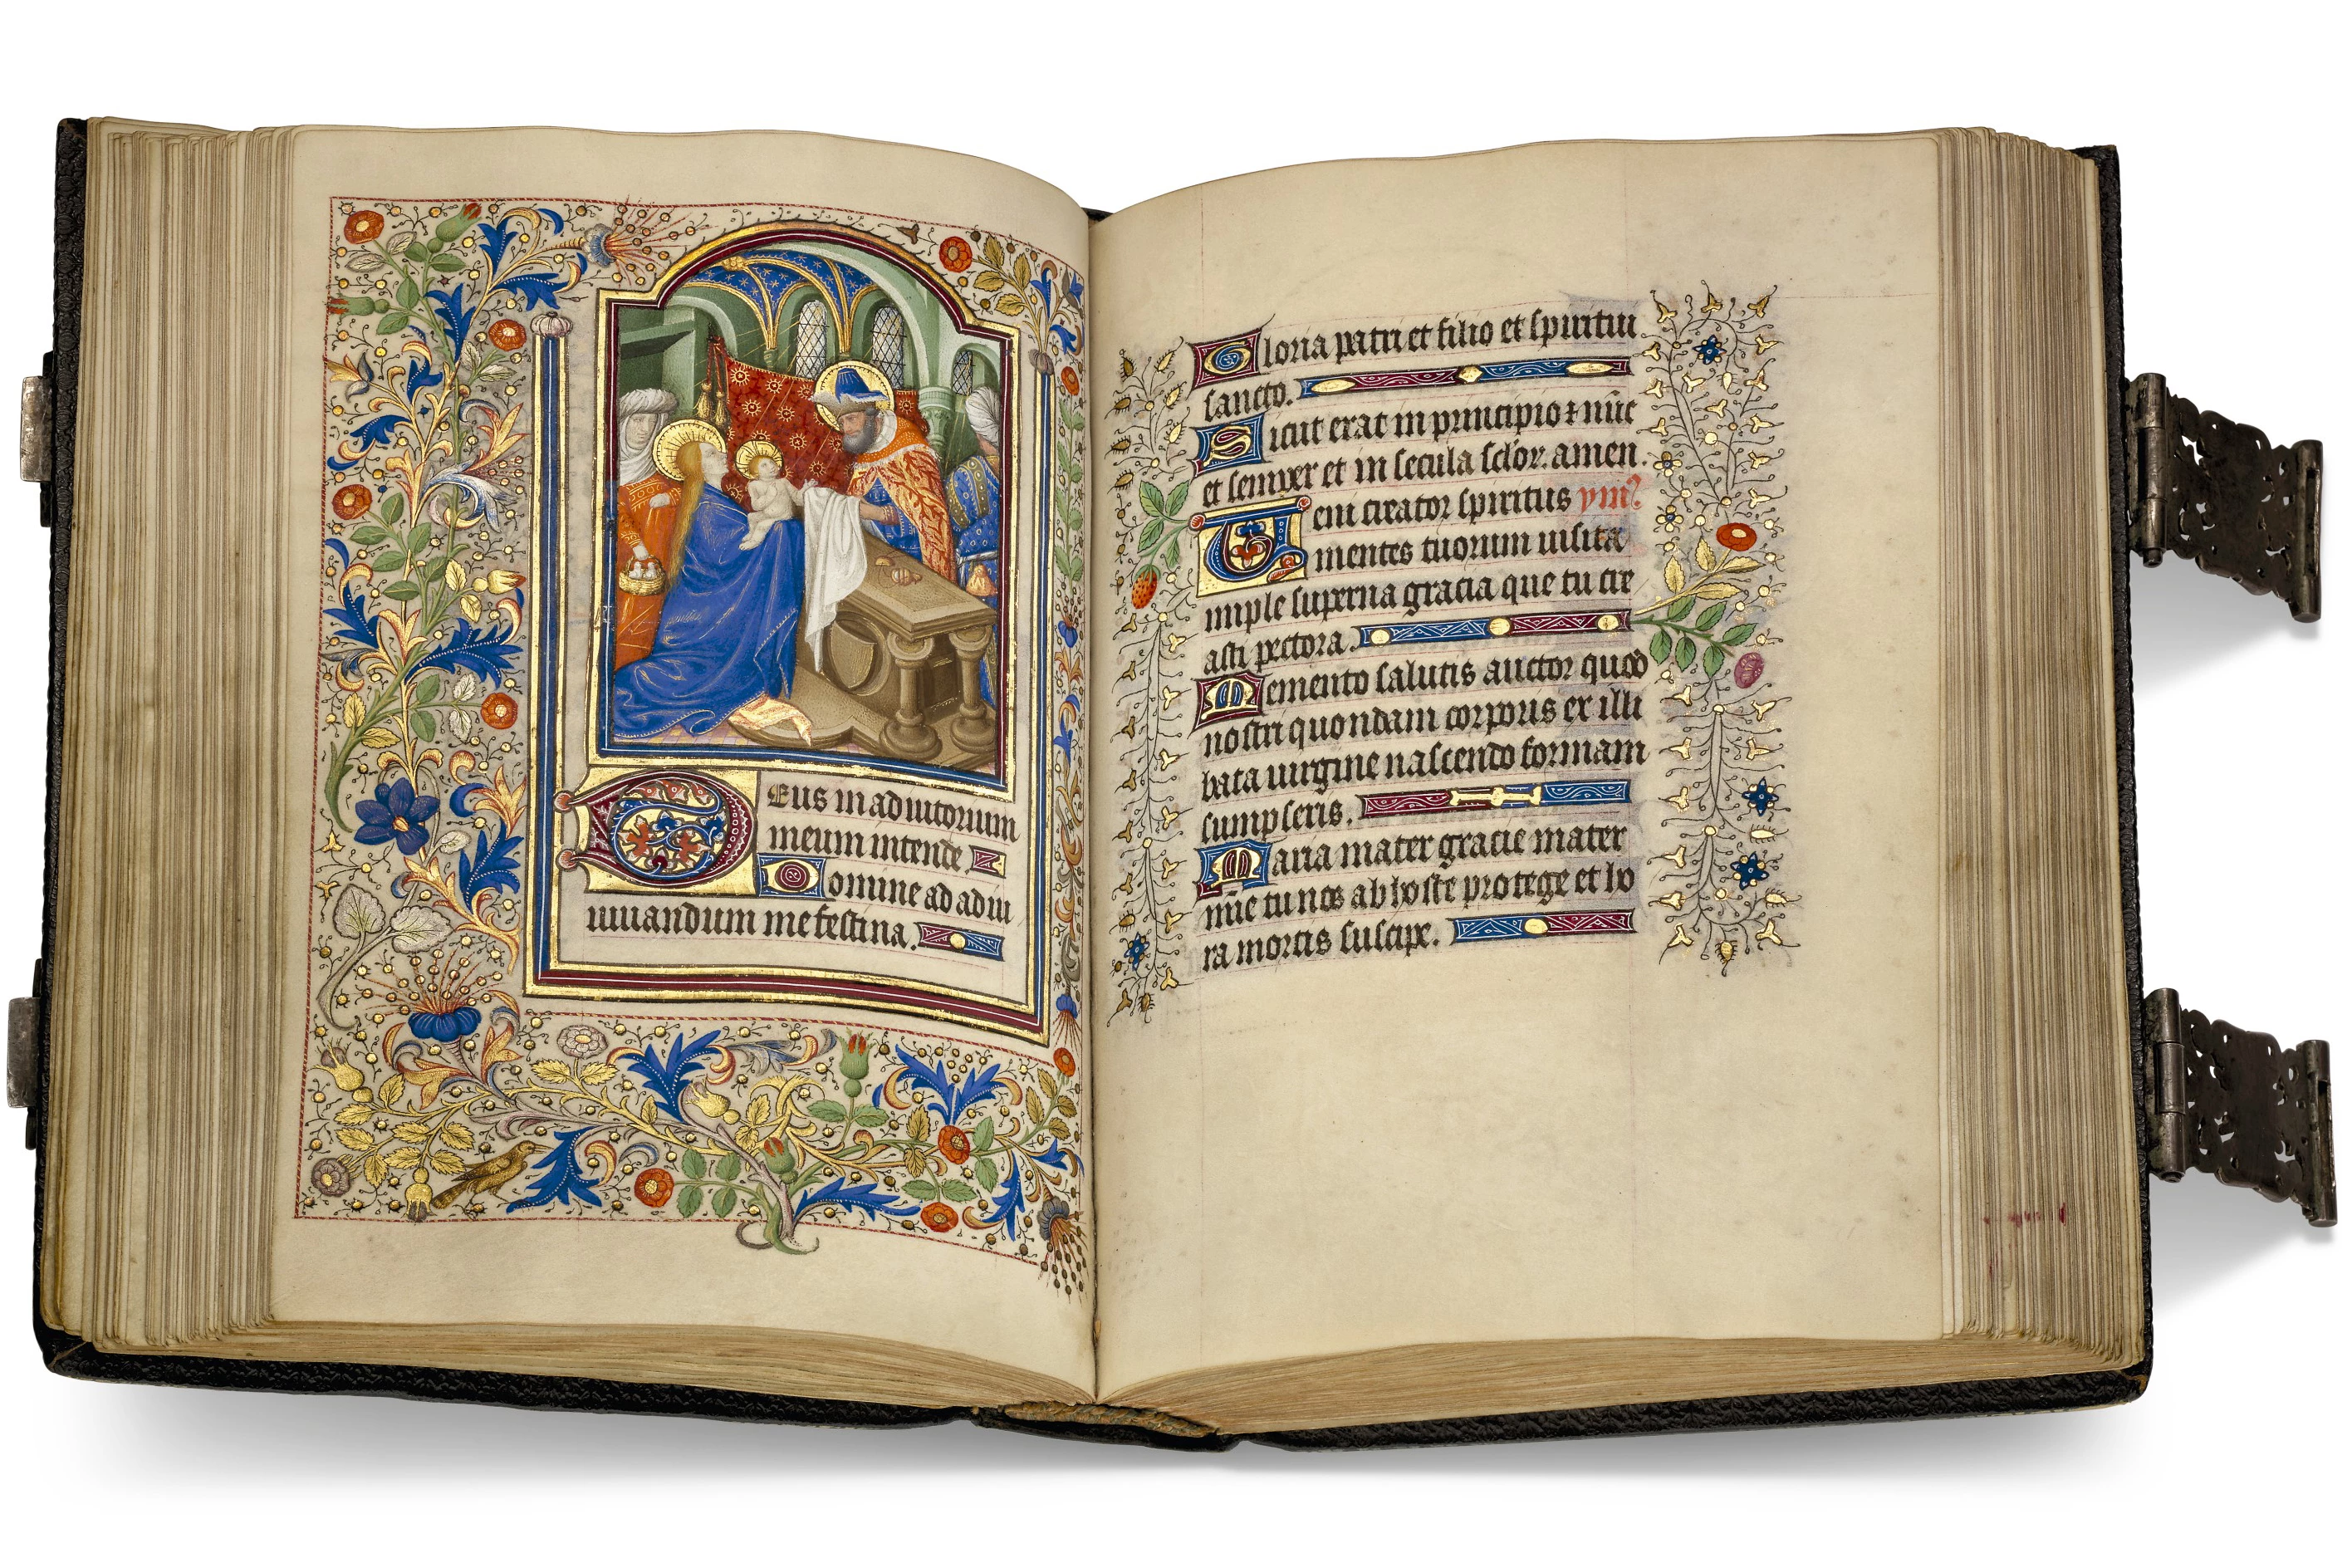 Deus in adiutorium
meum intende
Domine ad adiu
uuandum me festina.
Gloria patri et filio et spiritui
sancto.
Sicut erat in principio ⁊ nūc
et semper et in secula sclor̄. amen.
Veni creator spiritus ym̄ꝰ
mentes tuorum uisita
imple superna gracia que tu cre
asti pectora.
Memento salutis auctor quod
nostri quondam corporis ex illi
bata uirgine nascendo formam
sumpseris.
Maria mater gracie mater
mīe tu nos ab hoste protege et ho
ra mortis suscipe.